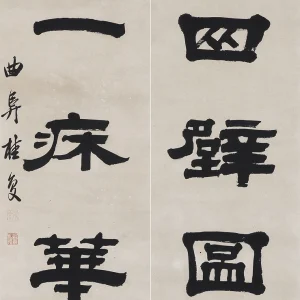 四壁圖
一床華
曲阜桂复